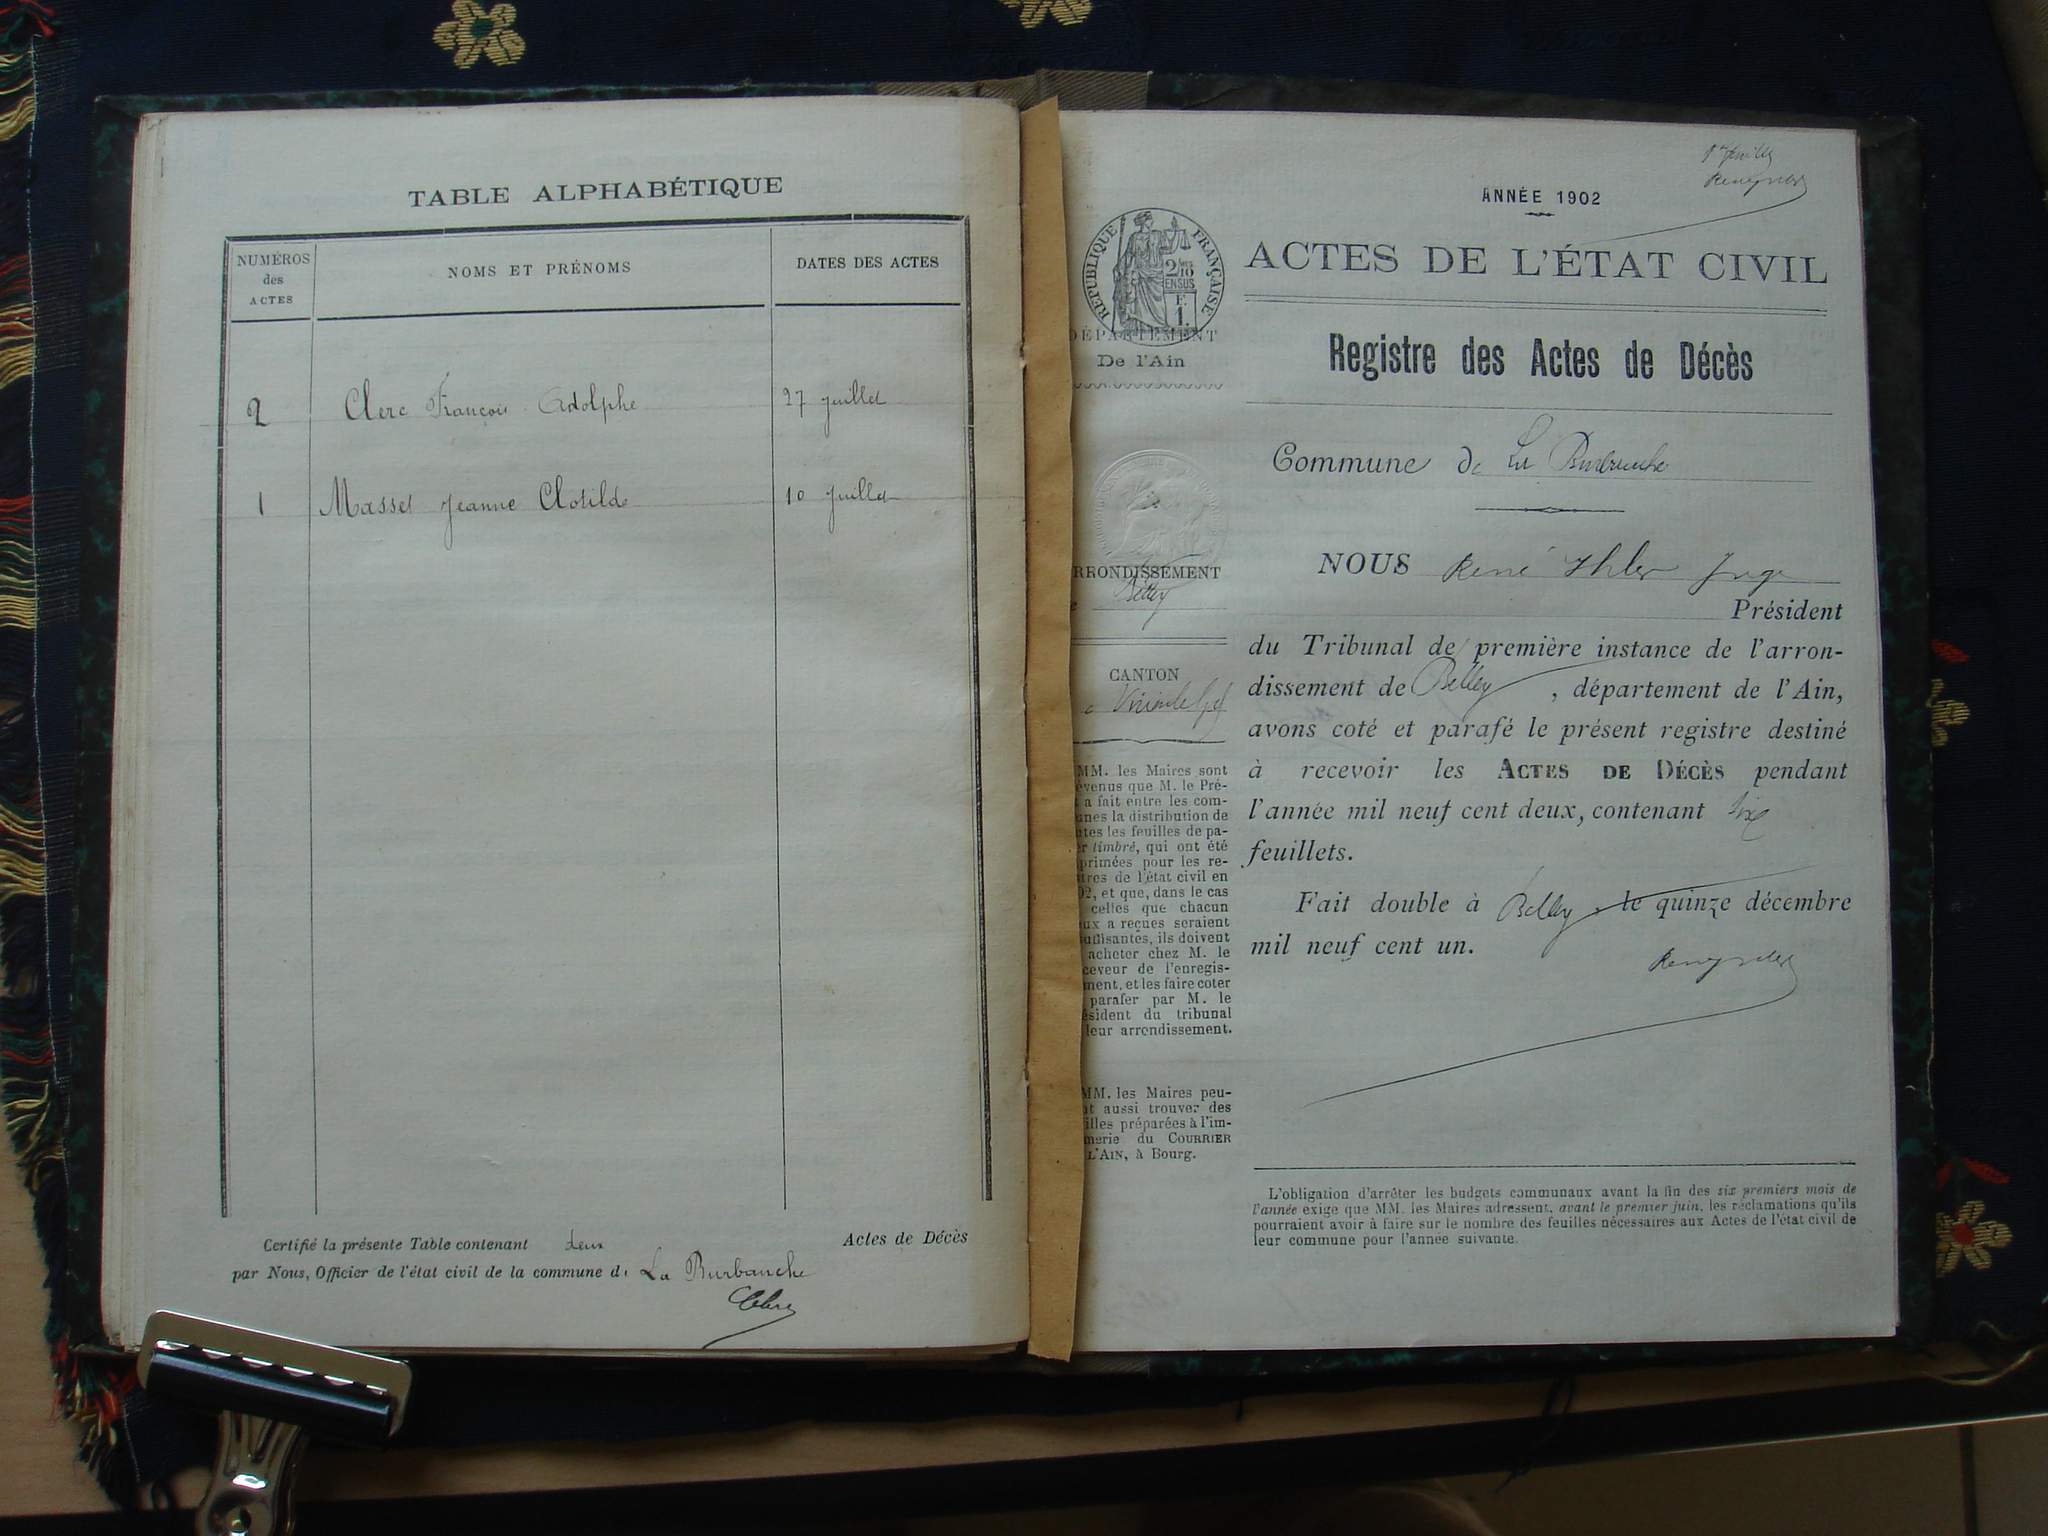 TABLE ALPHABÉTIQUE
NUMÉROS
des
ACTES
NOMS ET PRÉNOMS
DATES DES ACTES
2 Clerc François Adolphe 27 juillet
1 Masset Jeanne Clotilde 10 juillet
Certifié la présente Table contenant deux Actes de Décès
par Nous, Officier de l'état civil de la commune d La Burbanche
ANNÉE 1902
RÉPUBLIQUE FRANÇAISE
2
10
EN SUS
F.
1.
DÉPARTEMENT
De l'Ain
RRONDISSEMENT
Belley
CANTON
MM. les Maires sont
évenus que M. le Pré-
t a fait entre les com-
unes la distribution de
utes les feuilles de pa-
er timbré, qui ont été
primées pour les re-
tres de l'état civil en
02, et que, dans le cas
celles que chacun
ux a reçues seraient
suffisantes, ils doivent
acheter chez M. le
ceveur de l'enregis-
ment, et les faire coter
parafer par M. le
ésident du tribunal
leur arrendissement.
MM. les Maires peu-
nt aussi trouver des
illes préparées à l'im-
merie du COURRIER
L'AIN, à Bourg.
ACTES DE L'ÉTAT CIVIL
Registre des Actes de Décès
Commune de La Burbanche
NOUS René Juge
Président
du Tribunal de première instance de l'arron-
dissement de Belley, département de l'Ain,
avons coté et parafé le présent registre destiné
à recevoir les ACTES DE DÉCÈS pendant
l'année mil neuf cent deux, contenant six
feuillets.
Fait double à Belley, le quinze décembre
mil neuf cent un.
L'obligation d'arrêter les budgets communaux avant la fin des six premiers mois de
l'année exige que MM. les Maires adressent, avant le premier juin, les réclamations qu'ils
pourraient avoir à faire sur le nombre des feuilles nécessaires aux Actes de l'état civil de
leur commune pour l'année suivante.